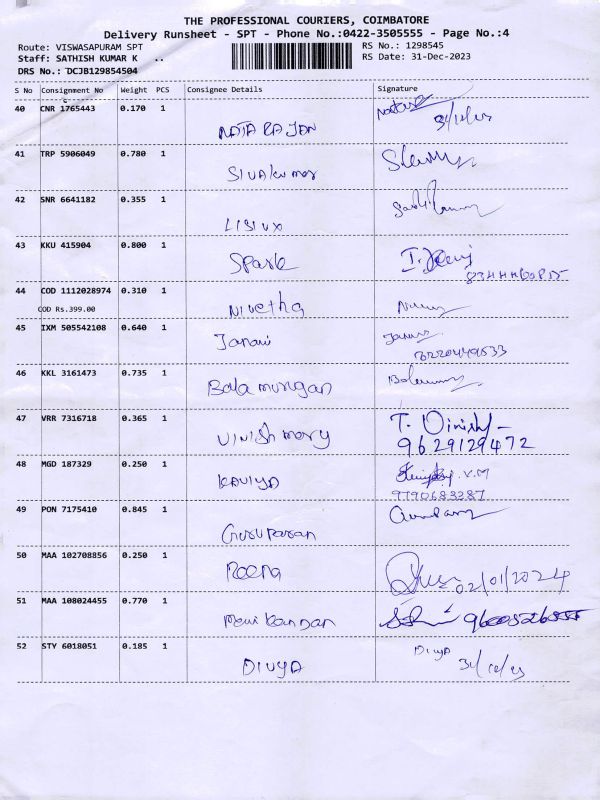 THE PROFESSIONAL COURIERS, COIMBATORE
Delivery Runsheet - SPT - Phone No.:0422-3505555 - Page No.:4
Route: VISWASAPURAM SPT RS No.: 1298545
Staff: SATHISH KUMAR K .. RS Date: 31-Dec-2023
DRS No.: DCJB129854504
S No Consignment No Weight PCS Consignee Details Signature
40 CNR 1765443 0.170 1
NATARAJAN 31/12/23
41 TRP 5906049 0.780 1
Sivakumar
42 SNR 6641182 0.355 1
LISIUX
43 KKU 415904 0.800 1
Spark
44 COD 1112028974 0.310 1
COD Rs.399.00 Nivetha
45 IXM 505542108 0.640 1
Janani
46 KKL 3161473 0.735 1
Bala murugan
47 VRR 7316718 0.365 1 T. Vinish
Vinish mary 9629129472
48 MGD 187329 0.250 1
KAVIYA V.M
9790683287
49 PON 7175410 0.845 1
Guruparan
50 MAA 102708856 0.250 1
Reena 02/01/2024
51 MAA 108024455 0.770 1
Manikandan 9600526555
52 STY 6018051 0.185 1 Divya
DIVYA 31/12/23